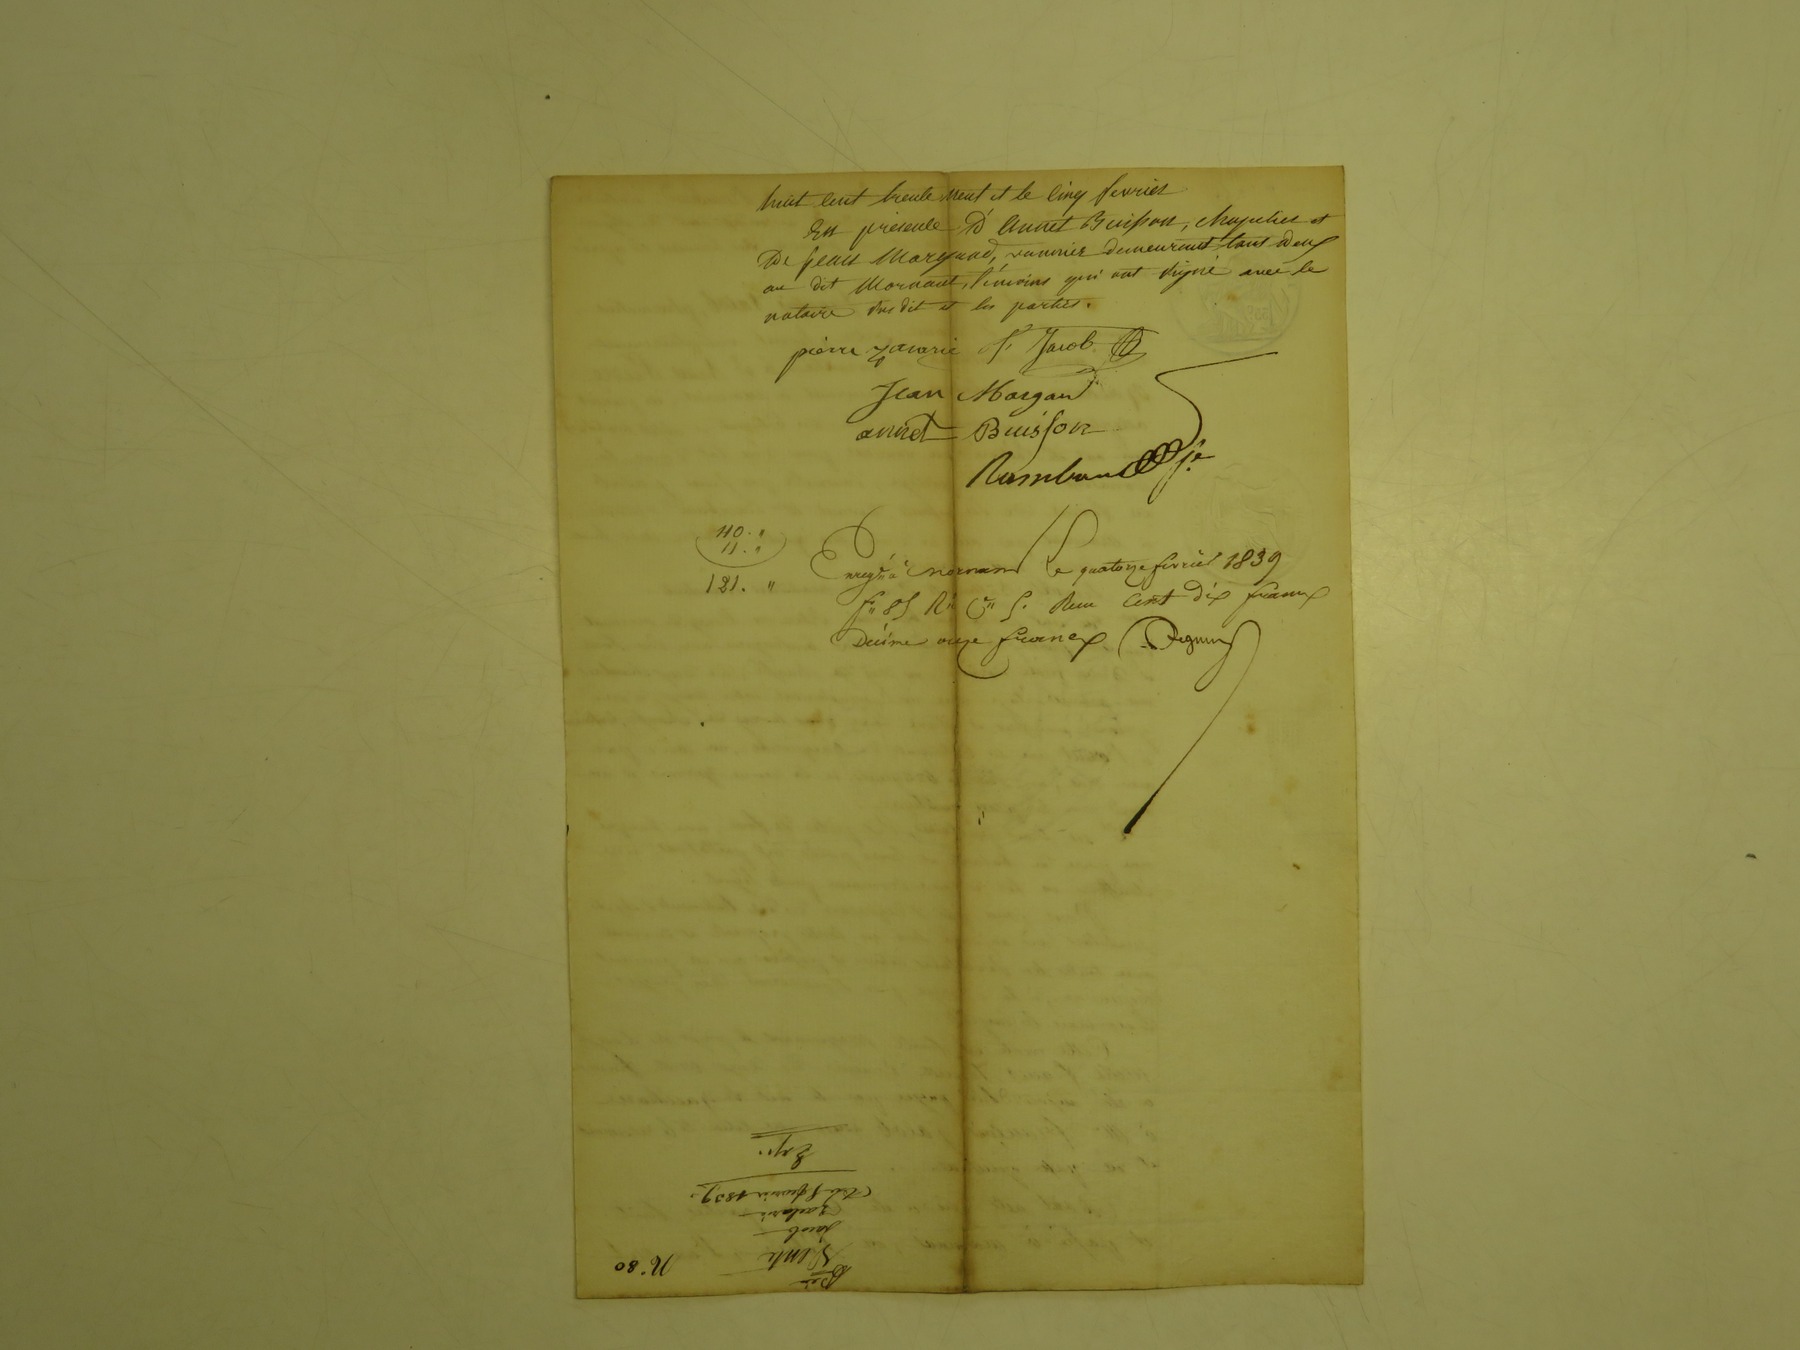 huit cent trente neuf et le cinq fevrier
En présence D'Annet Buisson, chapelier et
De Jean Morgand, vannier demeurant tous deux
au dit Mornant, témoins qui ont signé avec le
notaire susdit et les parties.
pierre zacarie f. Jacob
Jean Morgand
annet Buisson
Rambaud
110. "
11. "
121. "
Enregtré à mornant le quatorze fevrier 1839
f° 85 R° Cse 5. Recu Cent dix francs
Décime onze francs
Vente
Jacob
Zacarie
Du 5 fevrier 1839
Exp.
N° 80